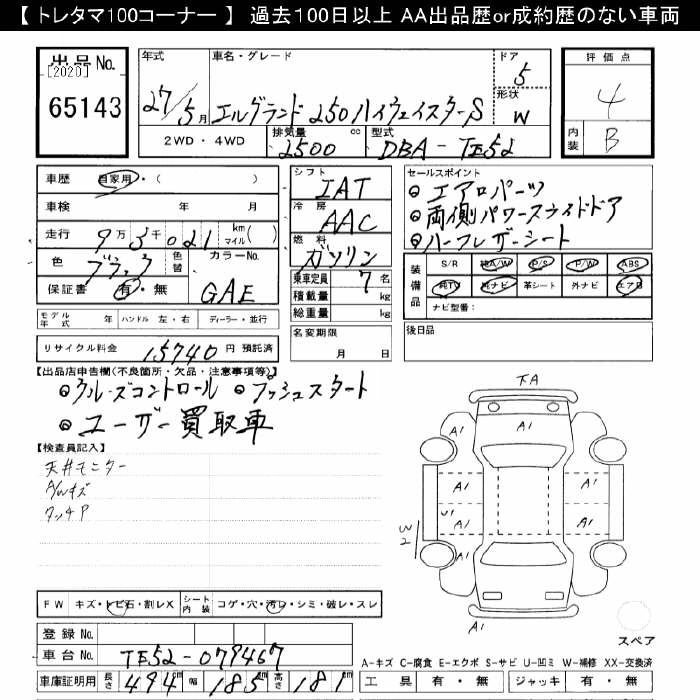 【 トレタマ100コーナー 】 過去100日以上 AA出品歴or成約歴のない車両
出品No.
[2020]
65143
年式 車名・グレード ドア 評価点
27/5月 エルグランド 250ハイウェイスターS 5
形状 W
4
内装 B
2WD・4WD 排気量 cc 型式
2500 DBA-TE52
車歴 自家用・( )
車検 年 月
走行 9万3千021 km マイル( )
色 ブラック 色替 カラーNo.
保証書 有・無 GAE
シフト IAT
冷房 AAC
燃料 ガソリン
乗車定員 7 名
積載量 kg
総重量 kg
セールスポイント
エアロパーツ
両側パワースライドドア
ハーフレザーシート
装備品 S/R 純A/W P/S P/W ABS
純TV 純ナビ 革シート 外ナビ エアB
ナビ型番:
モデル年式 年 ハンドル 左・右 ディーラー・並行
名変期限 月 日
後日品
リサイクル料金 15740 円 預託済
【出品店申告欄(不良箇所・欠品・注意事項等)】
クルーズコントロール プッシュスタート
ユーザー買取車
【検査員記入】
天井モニター
A/Wキズ
タッチP
下A
A1 A1 A1
A1 A1
U1 A1 A1
W2
A1 A1
A1
スペア
FW キズ・トビ石・割レX シート内装 コゲ・穴・汚レ・シミ・破レ・スレ
登録No.
車台No. TE52-079467
車庫証明用 長さ 494cm 幅 185cm 高さ 181cm
A-キズ C-腐食 E-エクボ S-サビ U-凹ミ W-補修 XX-交換済
工具 有・無 ジャッキ 有・無